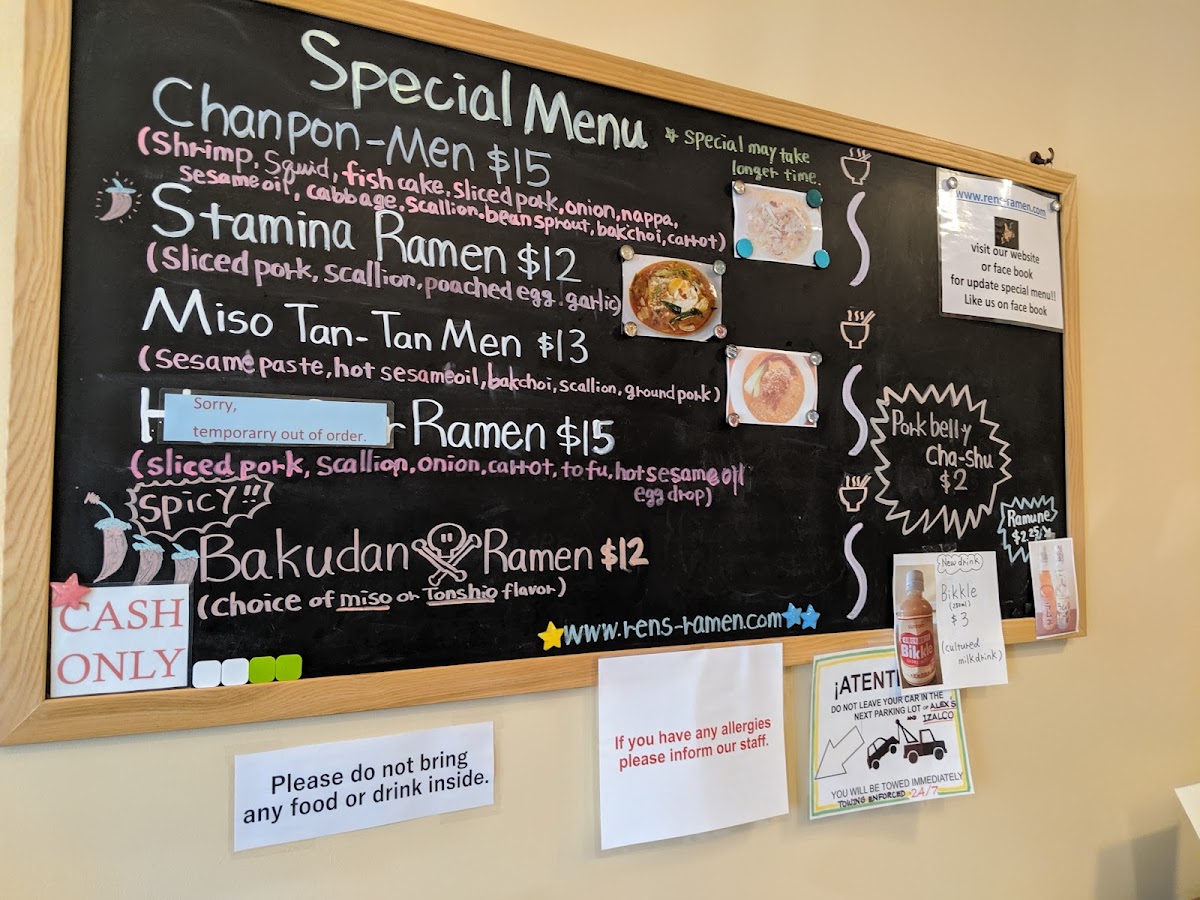 Special Menu
* special may take
longer time.
Chanpon-Men $15
(Shrimp, Squid, fish cake, sliced pork, onion, nappa,
sesame oil, cabbage, scallion, bean sprout, bakchoi, carrot)
Stamina Ramen $12
(Sliced pork, scallion, poached egg, garlic)
Miso Tan-Tan Men $13
(sesame paste, hot sesame oil, bakchoi, scallion, ground pork)
Sorry,
temporarry out of order.
Ramen $15
(sliced pork, scallion, onion, carrot, tofu, hot sesame oil
egg drop)
SPICY!!
Bakudan Ramen $12
(Choice of miso or Tonshio flavor)
www.rens-ramen.com
CASH
ONLY
www.rens-ramen.com
visit our website
or face book
for update special menu!!
Like us on face book
Pork belly
cha-shu
$2
Ramune
New drink
Bikkle
$3
(cultured
milk drink)
Bikkle
Please do not bring
any food or drink inside.
If you have any allergies
please inform our staff.
¡ATENTI
DO NOT LEAVE YOUR CAR IN THE
NEXT PARKING LOT OF ALEX'S
AND IZALCO
YOU WILL BE TOWED IMMEDIATELY
TOWING ENFORCED 24/7